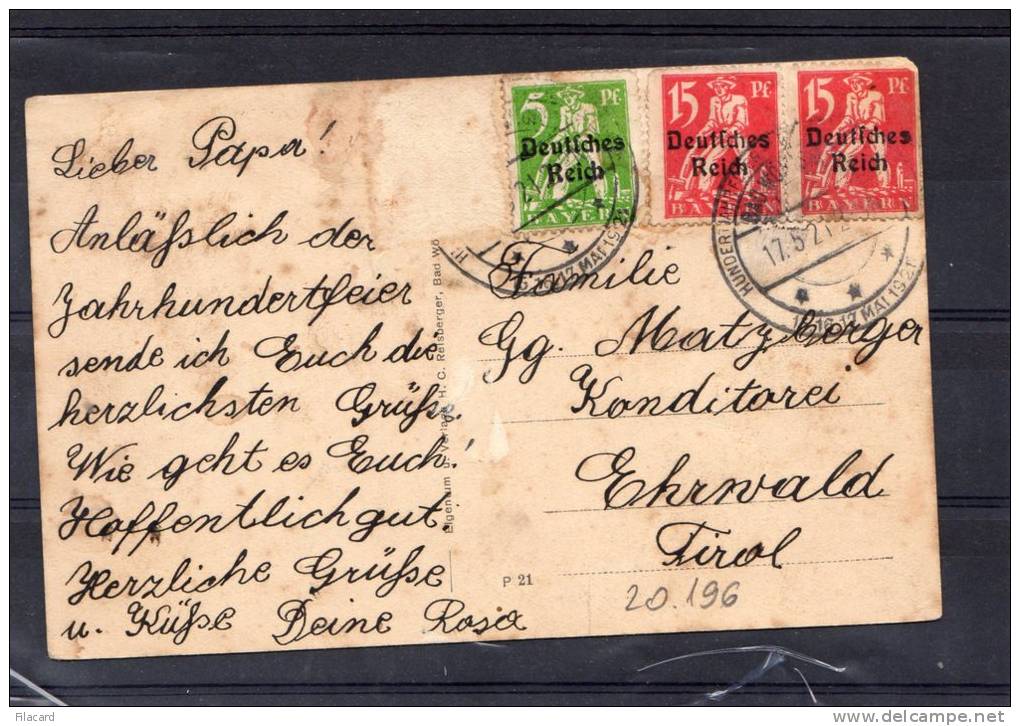 5 Pf.
Deutsches
Reich
BAYERN
15 Pf.
Deutsches
Reich
BAYERN
15 Pf.
Deutsches
Reich
BAYERN
17.5.21
15.16.17. MAI 1921
17. MAI 1921
Lieber Papa!
Anläßslich der
Jahrhundertfeier
sende ich Euch die
herzlichsten Grüße.
Wie geht es Euch!
Hoffentlich gut.
Herzliche Grüße
u. Küße Deine Rosa
Eigentum u. Verlag: H. C. Reisberger, Bad Wö
Familie
Gg. Matzberger
Konditorei
Ehrwald
Tirol
P 21
20.196
Filacard
www.delcampe.net